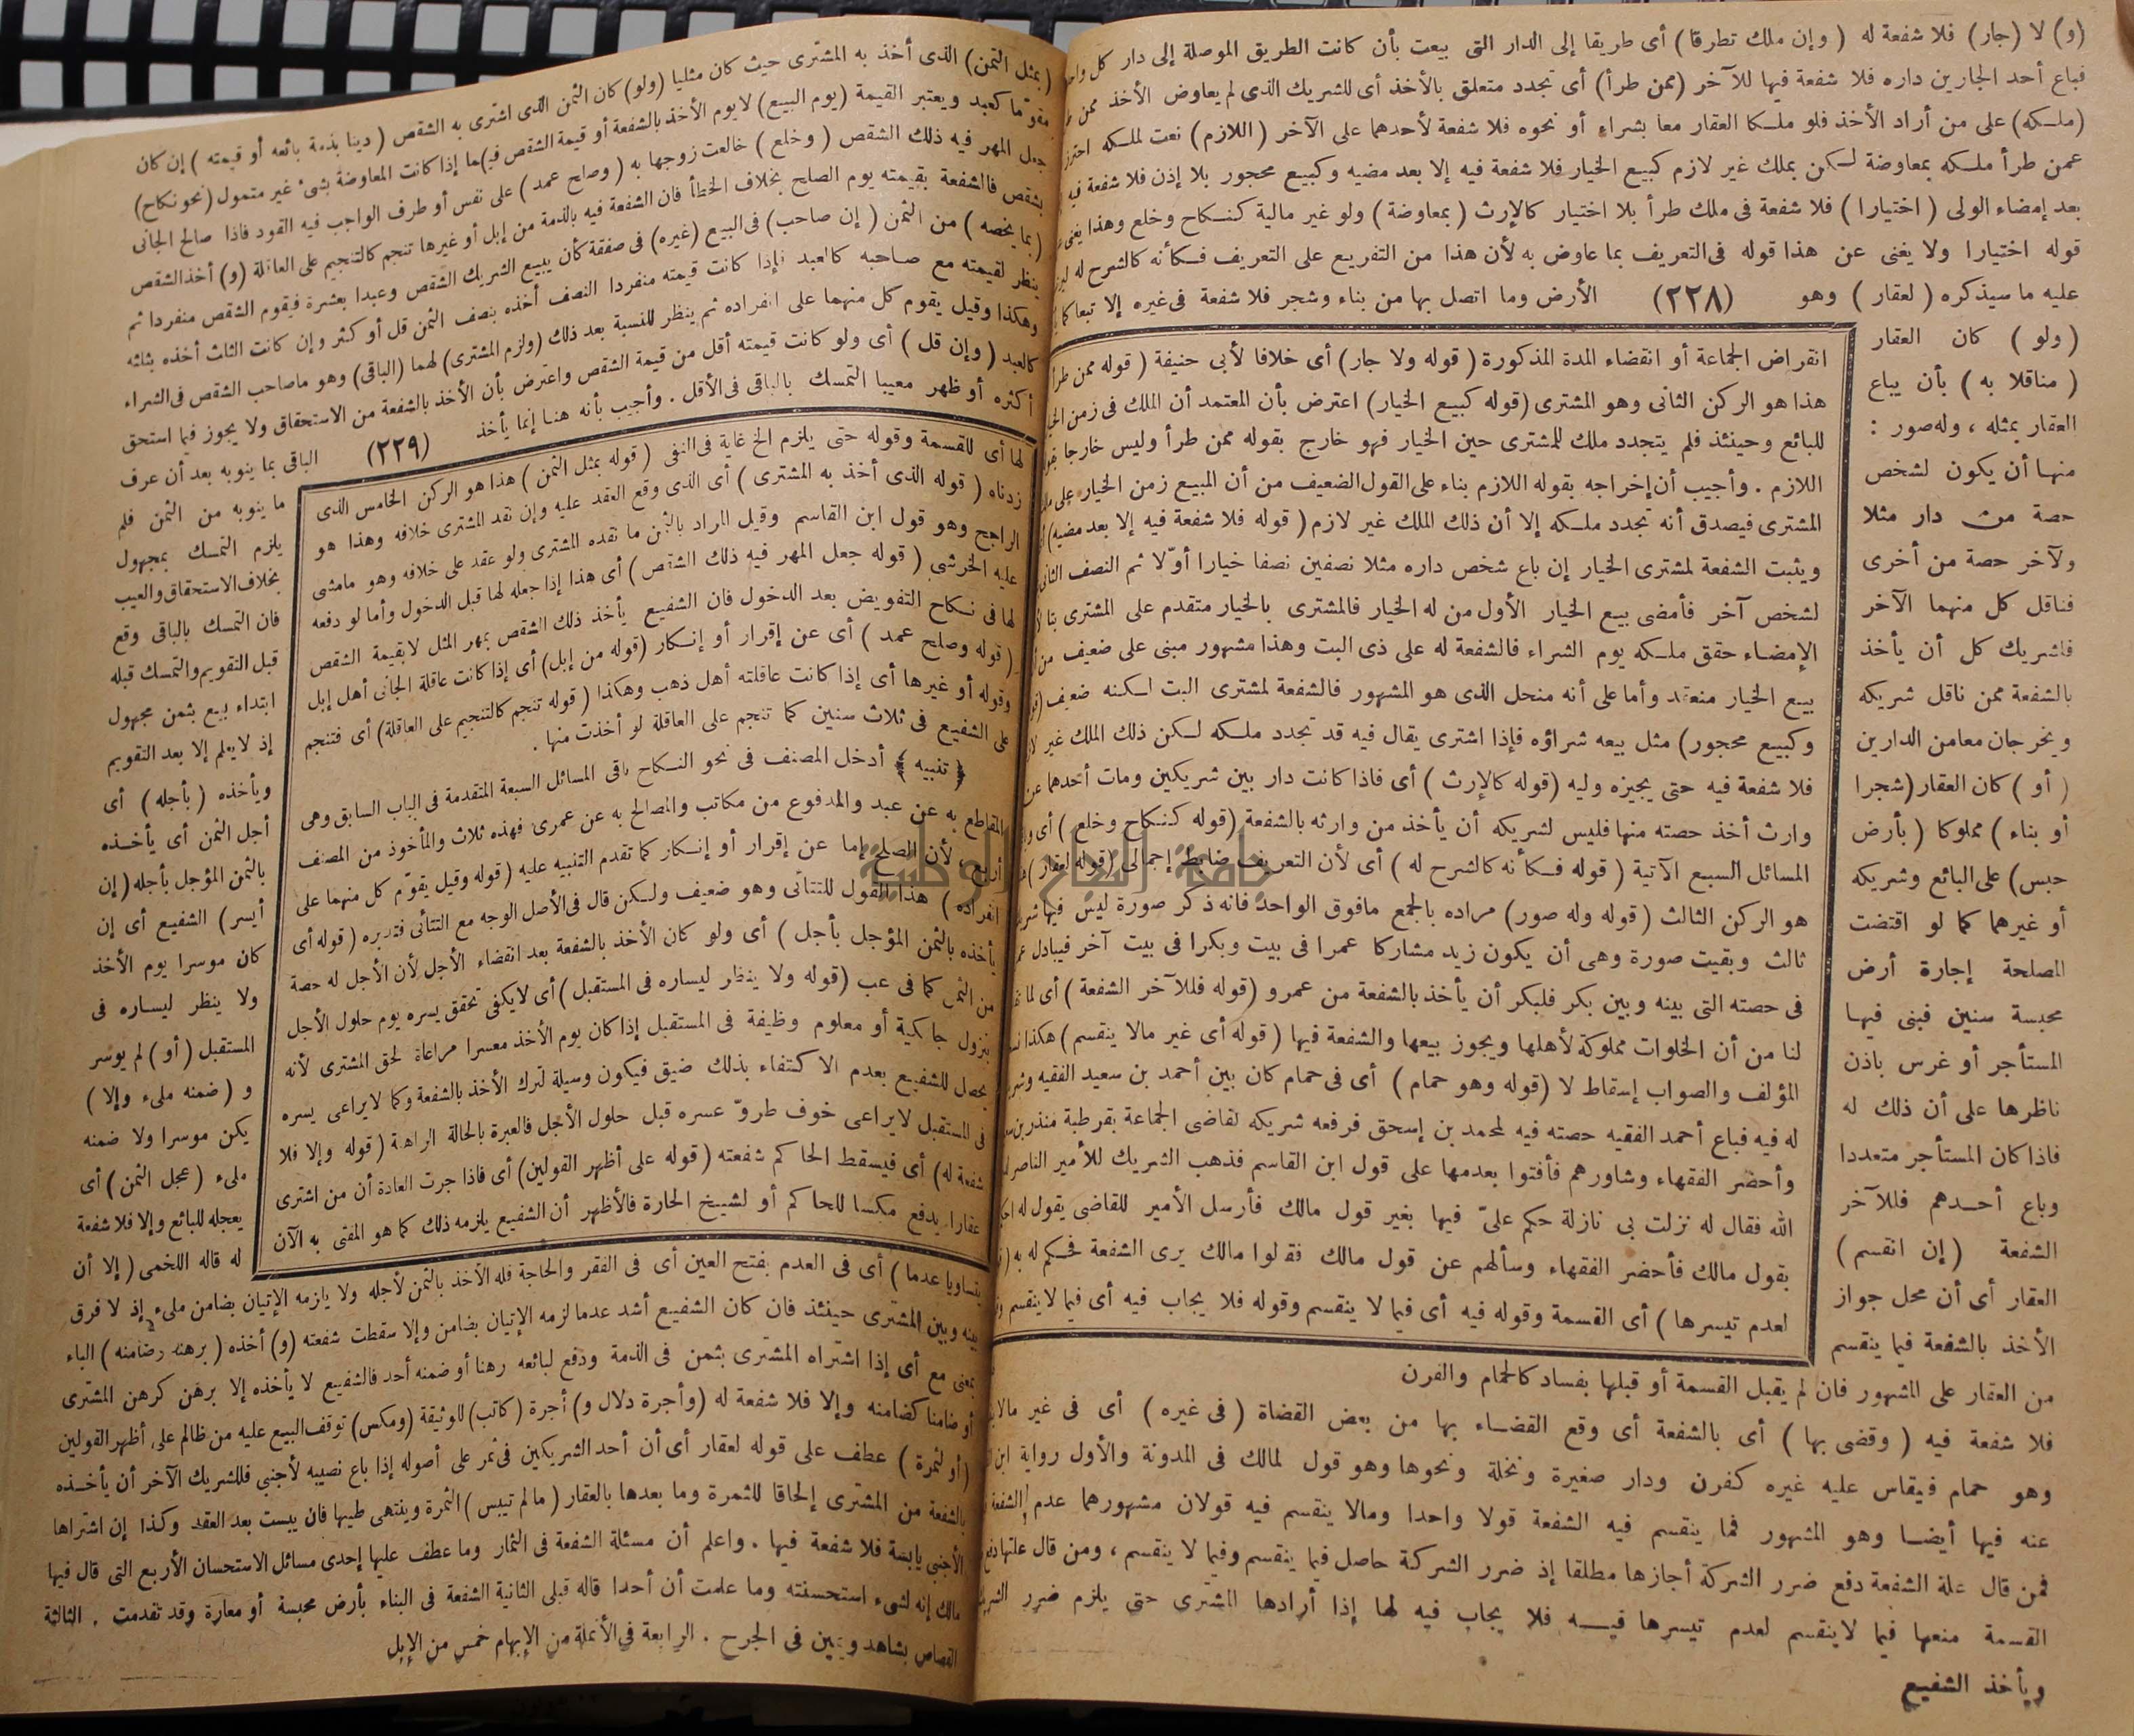 (و) لا (جار) فلا شفعة له (وإن ملك تطرقا) أى طريقا إلى الدار التى بيعت بأن كانت الطريق الموصلة إلى دار كل
فباع أحد الجارين داره فلا شفعة فيها للآخر (ممن طرأ) أى تجدد متعلق بالأخذ أى للشريك الذى لم يعاوض الأخذ ممن
(ملكه) على من أراد الأخذ فلو ملكا العقار معا بشراء أو نحوه فلا شفعة لأحدهما على الآخر (اللازم) نعت لملكه
عمن طرأ ملكه بمعاوضة لكن بملك غير لازم كبيع الخيار فلا شفعة فيه إلا بعد مضيه وكبيع محجور بلا إذن فلا شفعة فيه
بعد إمضاء الولى (اختيارا) فلا شفعة فى ملك طرأ بلا اختيار كالإرث (بمعاوضة) ولو غير مالية كنكاح وخلع وهذا
قوله اختيارا ولا يغنى عن هذا قوله فى التعريف بما عاوض به لأن هذا من التفريع على التعريف فكأنه كالشرح له
عليه ما سيذكره (لعقار) وهو (٢٢٨) الأرض وما اتصل بها من بناء وشجر فلا شفعة فى غيره إلا تبعا
(ولو) كان العقار
(مناقلا به) بأن يباع
العقار بمثله ، وله صور :
منها أن يكون لشخص
حصة من دار مثلا
ولآخر حصة من أخرى
فناقل كل منهما الآخر
فلشريك كل أن يأخذ
بالشفعة ممن ناقل شريكه
ويخرجان معا من الدارين
(أو) كان العقار (شجرا
أو بناء) مملوكا (بأرض
حبس) على البائع وشريكه
أو غيرهما كما لو اقتضت
المصلحة إجارة أرض
محبسة سنين فبنى فيها
المستأجر أو غرس باذن
ناظرها على أن ذلك له
فاذا كان المستأجر متعددا
وباع أحدهم فللآخر
الشفعة (إن انقسم)
العقار أى أن محل جواز
الأخذ بالشفعة فيما ينقسم
من العقار على المشهور فان لم يقبل القسمة أو قبلها بفساد كالحمام والفرن
فلا شفعة فيه (وقضى بها) أى بالشفعة أى وقع القضاء بها من بعض القضاة (فى غيره) أى فى غير
وهو حمام فيقاس عليه غيره كفرن ودار صغيرة ونخلة ونحوها وهو قول لمالك فى المدونة والأول رواية ابن
عنه فيها أيضا وهو المشهور فما ينقسم فيه الشفعة قولا واحدا ومالا ينقسم فيه قولان مشهورهما عدم الشفعة
فمن قال علة الشفعة دفع ضرر الشركة أجازها مطلقا إذ ضرر الشركة حاصل فيما ينقسم وفيما لا ينقسم ، ومن قال علتها
القسمة منعها فيما لا ينقسم لعدم تيسرها فيه فلا يجاب فيه لها إذا أرادها المشترى حتى يلزم ضرر
ويأخذ الشفيع
انقراض الجماعة أو انقضاء المدة المذكورة (قوله ولا جار) أى خلافا لأبى حنيفة (قوله ممن طرأ
هذا هو الركن الثانى وهو المشترى (قوله كبيع الخيار) اعترض بأن المعتمد أن الملك فى زمن
للبائع وحينئذ فلم يتجدد ملك للمشترى حين الخيار فهو خارج بقوله ممن طرأ وليس خارجا
اللازم . وأجيب أن إخراجه بقوله اللازم بناء على القول الضعيف من أن المبيع زمن الخيار على
المشترى فيصدق أنه تجدد ملكه إلا أن ذلك الملك غير لازم (قوله فلا شفعة فيه إلا بعد مضيه)
ويثبت الشفعة لمشترى الخيار إن باع شخص داره مثلا نصفين نصفا خيارا أولا ثم النصف الثانى
لشخص آخر فأمضى بيع الخيار الأول من له الخيار فالمشترى بالخيار متقدم على المشترى
الإمضاء حقق ملكه يوم الشراء فالشفعة له على ذى البت وهذا مشهور مبنى على ضعيف من
بيع الخيار منعقد وأما على أنه منحل الذى هو المشهور فالشفعة لمشترى البت لكنه ضعيف
وكبيع محجور) مثل بيعه شراؤه فإذا اشترى يقال فيه قد تجدد ملكه لكن ذلك الملك غير
فلا شفعة فيه حتى يجيزه وليه (قوله كالإرث) أى فاذا كانت دار بين شريكين ومات أحدهما عن
وارث أخذ حصته منها فليس لشريكه أن يأخذ من وارثه بالشفعة (قوله كنكاح وخلع) أى
المسائل السبع الآتية (قوله فكأنه كالشرح له) أى لأن التعريف ضابط إجمالى (قوله لعقار)
هو الركن الثالث (قوله وله صور) مراده بالجمع مافوق الواحد فانه ذكر صورة ليس فيها
ثالث وبقيت صورة وهى أن يكون زيد مشاركا عمرا فى بيت وبكرا فى بيت آخر فيبادل
فى حصته التى بينه وبين بكر فلبكر أن يأخذ بالشفعة من عمرو (قوله فللآخر الشفعة) أى
لنا من أن الخلوات مملوكة لأهلها ويجوز بيعها والشفعة فيها (قوله أى غير مالا ينقسم) هكذا
المؤلف والصواب إسقاط لا (قوله وهو حمام) أى فى حمام كان بين أحمد بن سعيد الفقيه
له فيه فباع أحمد الفقيه حصته فيه لمحمد بن إسحق فرفعه شريكه لقاضى الجماعة بقرطبة منذر بن
وأحضر الفقهاء وشاورهم فأفتوا بعدمها على قول ابن القاسم فذهب الشريك للأمير الناصر
الله فقال له نزلت بى نازلة حكم علىّ فيها بغير قول مالك فأرسل الأمير للقاضى يقول له
بقول مالك فأحضر الفقهاء وسألهم عن قول مالك فقالوا مالك يرى الشفعة فحكم له به
لعدم تيسرها) أى القسمة وقوله فيه أى فيما لا ينقسم وقوله فلا يجاب فيه أى فيما لا ينقسم
(بمثل الثمن) الذى أخذ به المشترى حيث كان مثليا (ولو) كان الثمن الذى اشترى به الشقص (دينا بذمة بائعه أو قيمته) إن كان
مقوّما كعبد ويعتبر القيمة (يوم البيع) لا يوم الأخذ بالشفعة أو قيمة الشقص فيما إذا كانت المعاوضة بشىء غير متمول (نحو نكاح)
جعل المهر فيه ذلك الشقص (وخلع) خالعت زوجها به (وصلح عمد) على نفس أو طرف الواجب فيه القود فاذا صالح الجانى
بشقص فالشفعة بقيمته يوم الصلح بخلاف الخطأ فان الشفعة فيه بالدية من إبل أو غيرها تنجم كالتنجيم على العاقلة (و) أخذ الشقص
(بما يخصه) من الثمن (إن صاحب) فى البيع (غيره) فى صفقة كأن يبيع الشريك الشقص وعبدا بعشرة فيقوم الشقص منفردا ثم
ينظر لقيمته مع صاحبه كالعبد فإذا كانت قيمته منفردا النصف أخذه بنصف الثمن قل أو كثر وإن كانت الثلث أخذه بثلثه
وهكذا وقيل يقوم كل منهما على انفراده ثم ينظر للنسبة بعد ذلك (ولزم المشترى) لهما (الباقى) وهو ما صاحب الشقص فى الشراء
كالعبد (وإن قل) أى ولو كانت قيمته أقل من قيمة الشقص واعترض بأن الأخذ بالشفعة من الاستحقاق ولا يجوز فيما استحق
أكثره أو ظهر معيبا التمسك بالباقى فى الأقل . وأجيب بأنه هنا إنما يأخذ (٢٢٩) الباقى بما ينوبه بعد أن عرف
ما ينوبه من الثمن فلم
يلزم التمسك بمجهول
بخلاف الاستحقاق والعيب
فان التمسك بالباقى وقع
قبل التقويم والتمسك قبله
ابتداء بيع بثمن مجهول
إذ لا يعلم إلا بعد التقويم
ويأخذه (بأجله) أى
أجل الثمن أى يأخذه
بالثمن المؤجل بأجله (إن
أيسر) الشفيع أى إن
كان موسرا يوم الأخذ
ولا ينظر ليساره فى
المستقبل (أو) لم يوسر
و (ضمنه ملىء وإلا)
يكن موسرا ولا ضمنه
ملىء (عجل الثمن) أى
يعجله للبائع وإلا فلا شفعة
له قاله اللخمى (إلا أن
يتساويا عدما) أى فى العدم بفتح العين أى فى الفقر والحاجة فله الأخذ بالثمن لأجله ولا يلزمه الإتيان بضامن ملىء إذ لا فرق
بينه وبين المشترى حينئذ فان كان الشفيع أشد عدما لزمه الإتيان بضامن وإلا سقطت شفعته (و) أخذه (برهنه وضامنه) الباء
بمعنى مع أى إذا اشتراه المشترى بثمن فى الذمة ودفع لبائعه رهنا أو ضمنه أحد فالشفيع لا يأخذه إلا برهن كرهن المشترى
أو ضامنا كضامنه وإلا فلا شفعة له (وأجرة دلال و) أجرة (كاتب) للوثيقة (ومكس) توقف البيع عليه من ظالم على أظهر القولين
(أو لثمرة) عطف على قوله لعقار أى أن أحد الشريكين فى ثمر على أصوله إذا باع نصيبه لأجنبى فللشريك الآخر أن يأخذه
بالشفعة من المشترى إلحاقا للثمرة وما بعدها بالعقار (ما لم تيبس) الثمرة وينتهى طيبها فان يبست بعد العقد وكذا إن اشتراها
الأجنبى يابسة فلا شفعة فيها . واعلم أن مسئلة الشفعة فى الثمار وما عطف عليها إحدى مسائل الاستحسان الأربع التى قال فيها
مالك إنه لشىء استحسنته وما علمت أن أحدا قاله قبلى الثانية الشفعة فى البناء بأرض محبسة أو معارة وقد تقدمت . الثالثة
القصاص بشاهد ويمين فى الجرح . الرابعة فى الأنملة من الإبهام خمس من الإبل
لها أى للقسمة وقوله حتى يلزم الخ غاية فى النفى (قوله بمثل الثمن) هذا هو الركن الخامس الذى
زدناه (قوله الذى أخذ به المشترى) أى الذى وقع العقد عليه وإن نقد المشترى خلافه وهذا هو
الراجح وهو قول ابن القاسم وقيل المراد بالثمن ما نقده المشترى ولو عقد على خلافه وهو مامشى
عليه الخرشى (قوله جعل المهر فيه ذلك الشقص) أى هذا إذا جعله لها قبل الدخول وأما لو دفعه
لها فى نكاح التفويض بعد الدخول فان الشفيع يأخذ ذلك الشقص بمهر المثل لا بقيمة الشقص
(قوله وصلح عمد) أى عن إقرار أو إنكار (قوله من إبل) أى إذا كانت عاقلة الجانى أهل إبل
وقوله أو غيرها أى إذا كانت عاقلته أهل ذهب وهكذا (قوله تنجم كالتنجيم على العاقلة) أى فتنجم
على الشفيع فى ثلاث سنين كما تنجم على العاقلة لو أخذت منها .
﴿تنبيه﴾ أدخل المصنف فى نحو النكاح باقى المسائل السبعة المتقدمة فى الباب السابق وهى
المقاطع به عن عبد والمدفوع من مكاتب والمصالح به عن عمرى فهذه ثلاث والمأخوذ من المصنف
أربع لأن الصلح إما عن إقرار أو إنكار كما تقدم التنبيه عليه (قوله وقيل يقوّم كل منهما على
انفراده) هذا القول للتتائى وهو ضعيف ولكن قال فى الأصل الوجه مع التتائى فتدبره (قوله أى
يأخذه بالثمن المؤجل بأجل) أى ولو كان الأخذ بالشفعة بعد انقضاء الأجل لأن الأجل له حصة
من الثمن كما فى عب (قوله ولا ينظر ليساره فى المستقبل) أى لا يكفى تحقق يسره يوم حلول الأجل
بنزول جامكية أو معلوم وظيفة فى المستقبل إذا كان يوم الأخذ معسرا مراعاة لحق المشترى لأنه
يحصل للشفيع بعدم الاكتفاء بذلك ضيق فيكون وسيلة لترك الأخذ بالشفعة وكما لا يراعى يسره
فى المستقبل لا يراعى خوف طروّ عسره قبل حلول الأجل فالعبرة بالحالة الراهنة (قوله وإلا فلا
شفعة له) أى فيسقط الحاكم شفعته (قوله على أظهر القولين) أى فاذا جرت العادة أن من اشترى
عقارا يدفع مكسا للحاكم أو لشيخ الحارة فالأظهر أن الشفيع يلزمه ذلك كما هو المفتى به الآن
جامعة النجاح الوطنية